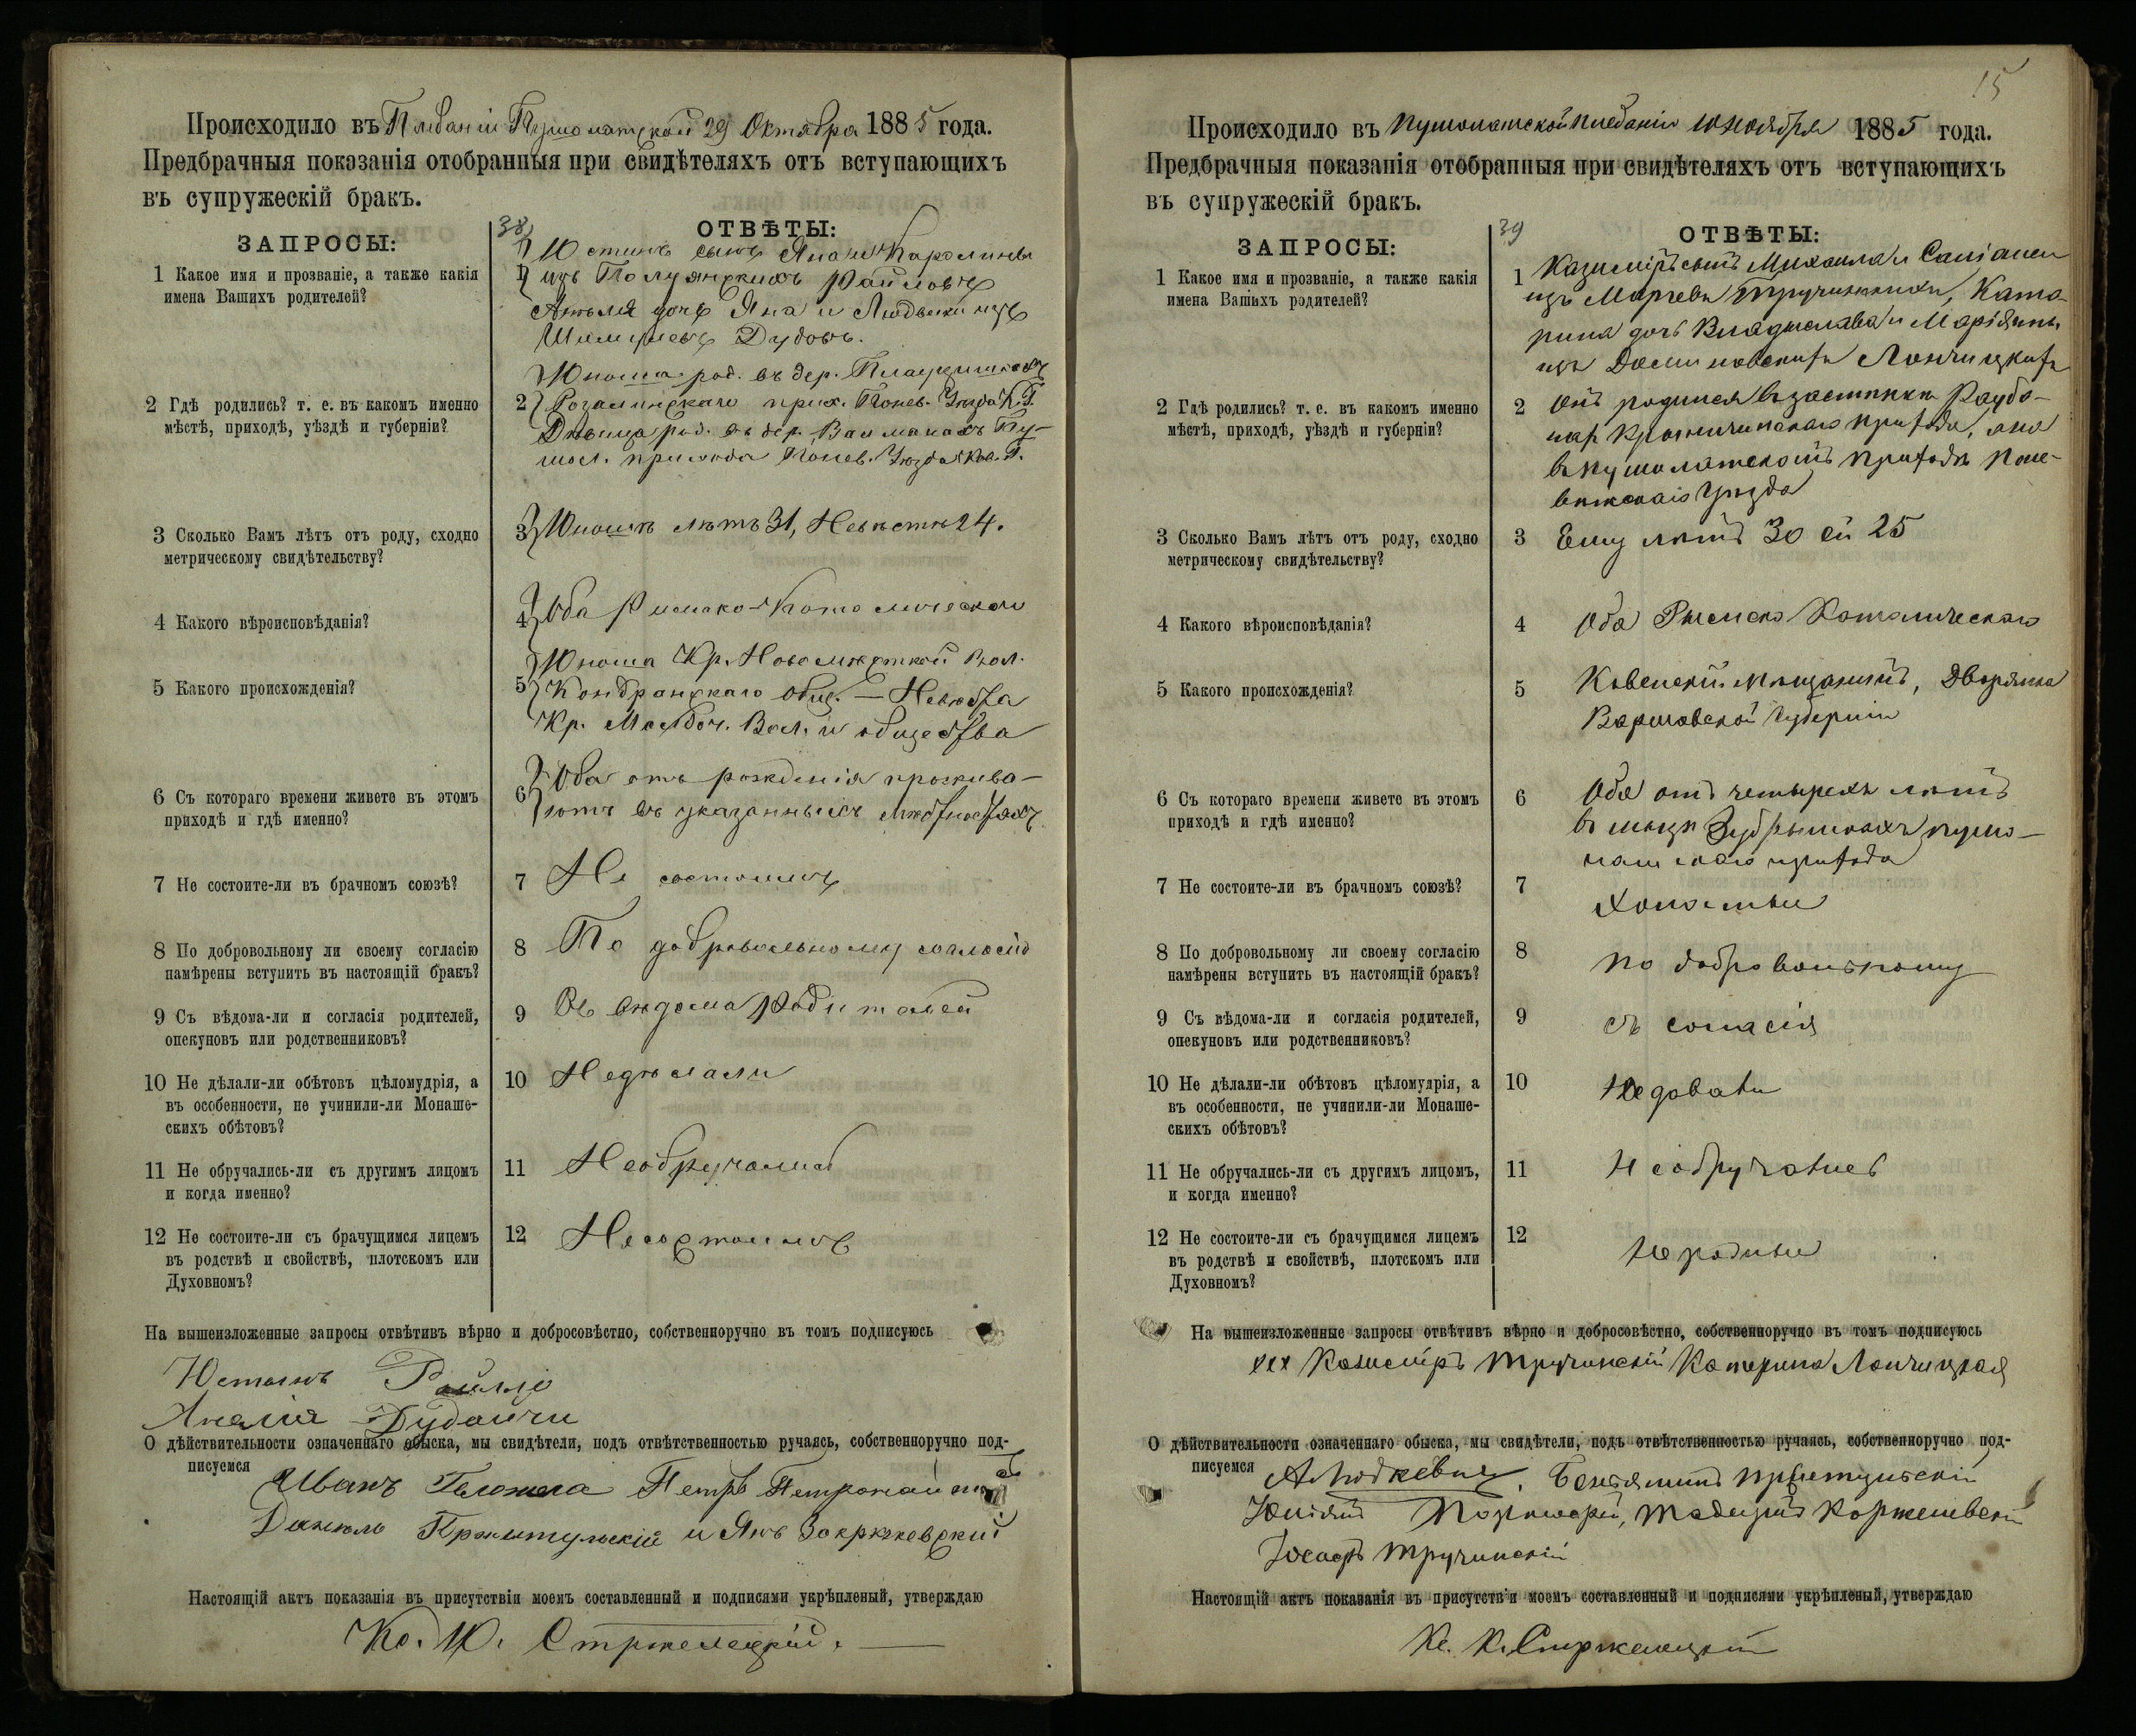 Происходило въ Плебаніи Пушолатской 29 Октября 1885 года.
Предбрачныя показанія отобранныя при свидѣтеляхъ отъ вступающихъ
въ супружескій бракъ.
ЗАПРОСЫ:
38
ОТВѢТЫ:
1 Какое имя и прозваніе, а также какія
имена Вашихъ родителей?
1 Юстинъ сынъ Яна и Каролины
изъ
дочь Яна и Людвики изъ
2 Гдѣ родились? т. е. въ какомъ именно
мѣстѣ, приходѣ, уѣздѣ и губерніи?
Юноша род. въ дер.
2 Розалинскаго прих. Понев. Уѣзда К. Г.
Дѣвица род. въ дер. Пу-
шол. прихода Понев. Уѣзда Ков. Г.
3 Сколько Вамъ лѣтъ отъ роду, сходно
метрическому свидѣтельству?
3 Юношѣ лѣтъ 31, Невѣстѣ 24.
4 Какого вѣроисповѣданія?
4 Оба Римско-Католическаго
5 Какого происхожденія?
Юноша Кр. Новомѣстской Вол.
5 общ. — Невѣста
Кр. Вол. и общества
6 Съ котораго времени живете въ этомъ
приходѣ и гдѣ именно?
6 Оба отъ рожденія прожива-
ютъ въ указанныхъ мѣстностяхъ
7 Не состоите-ли въ брачномъ союзѣ?
7 Не состоимъ
8 По добровольному ли своему согласію
намѣрены вступить въ настоящій бракъ?
8 По добровольному согласію
9 Съ вѣдома-ли и согласія родителей,
опекуновъ или родственниковъ?
9 Съ вѣдома родителей
10 Не дѣлали-ли обѣтовъ цѣломудрія, а
въ особенности, не учинили-ли Монаше-
скихъ обѣтовъ?
10 Недѣлали
11 Не обручались-ли съ другимъ лицомъ
и когда именно?
11 Необручались
12 Не состоите-ли съ брачущимся лицемъ
въ родствѣ и свойствѣ, плотскомъ или
Духовномъ?
12 Несостоимъ
На вышеизложенные запросы отвѣтивъ вѣрно и добросовѣстно, собственноручно въ томъ подписуюсь
Юстинъ
О дѣйствительности означеннаго обыска, мы свидѣтели, подъ отвѣтственностью ручаясь, собственноручно под-
писуемся
Иванъ Петръ
и Янъ Закржевскій
Настоящій актъ показанія въ присутствіи моемъ составленный и подписями укрѣпленый, утверждаю
Кс. Стржелецкій.
15
Происходило въ Пушолатской плебаніи 10 ноября 1885 года.
Предбрачныя показанія отобранныя при свидѣтеляхъ отъ вступающихъ
въ супружескій бракъ.
ЗАПРОСЫ:
39
ОТВѢТЫ:
1 Какое имя и прозваніе, а также какія
имена Вашихъ родителей?
1 Казиміръ сынъ Михаила и
изъ Катa-
рина дочь Владислава и Маріянны
изъ
2 Гдѣ родились? т. е. въ какомъ именно
мѣстѣ, приходѣ, уѣздѣ и губерніи?
2 Онъ родился въ застѣнкѣ
прихода, она
въ пушолатскомъ приходѣ Поне-
вѣжскаго Уѣзда
3 Сколько Вамъ лѣтъ отъ роду, сходно
метрическому свидѣтельству?
3 Ему лѣтъ 30 ей 25
4 Какого вѣроисповѣданія?
4 Оба Римско Католическаго
5 Какого происхожденія?
5 Ковенскій мѣщанинъ, Дворянка
Варшавской Губерніи
6 Съ котораго времени живете въ этомъ
приходѣ и гдѣ именно?
6 Оба отъ четырехъ лѣтъ
въ пушо-
латскаго прихода
7 Не состоите-ли въ брачномъ союзѣ?
7 Холостые
8 По добровольному ли своему согласію
намѣрены вступить въ настоящій бракъ?
8 По добровольному
9 Съ вѣдома-ли и согласія родителей,
опекуновъ или родственниковъ?
9 съ согласія
10 Не дѣлали-ли обѣтовъ цѣломудрія, а
въ особенности, не учинили-ли Монаше-
скихъ обѣтовъ?
10 Недавали
11 Не обручались-ли съ другимъ лицомъ,
и когда именно?
11 Необручались
12 Не состоите-ли съ брачущимся лицемъ
въ родствѣ и свойствѣ, плотскомъ или
Духовномъ?
12 Не родные
На вышеизложенные запросы отвѣтивъ вѣрно и добросовѣстно, собственноручно въ томъ подписуюсь
ххх Казиміръ Тручинскій Катерина Лончицкая
О дѣйствительности означеннаго обыска, мы свидѣтели, подъ отвѣтственностью ручаясь, собственноручно под-
писуемся
Корженевскій
Іосифъ Тручинскій
Настоящій актъ показанія въ присутствіи моемъ составленный и подписями укрѣпленый, утверждаю
Кс. Стржелецкій